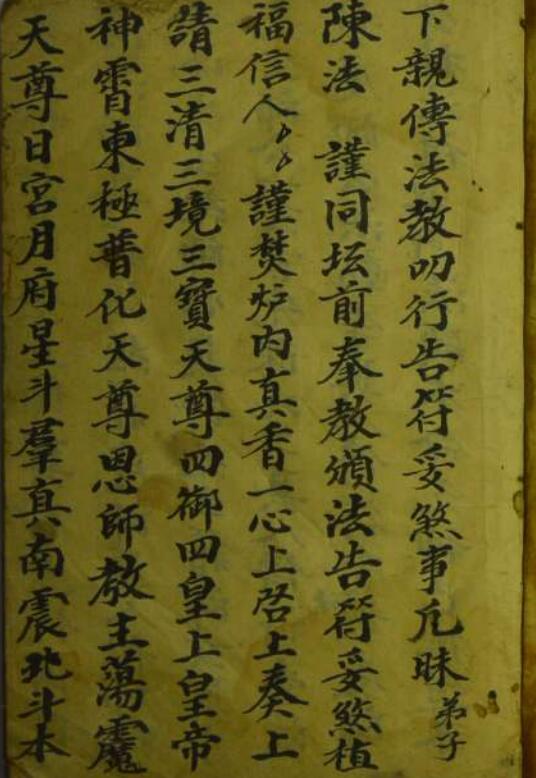 下親傳法教叨行告符妥煞事凡昧弟子
陳法 謹同坛前奉教頒法告符妥煞植
福信人〻謹焚炉内真香一心上啓上奏上
請三清三境三寳天尊四御四皇上皇帝
神霄東極普化天尊恩師教主蕩魔
天尊日宮月府星斗羣真南震北斗本